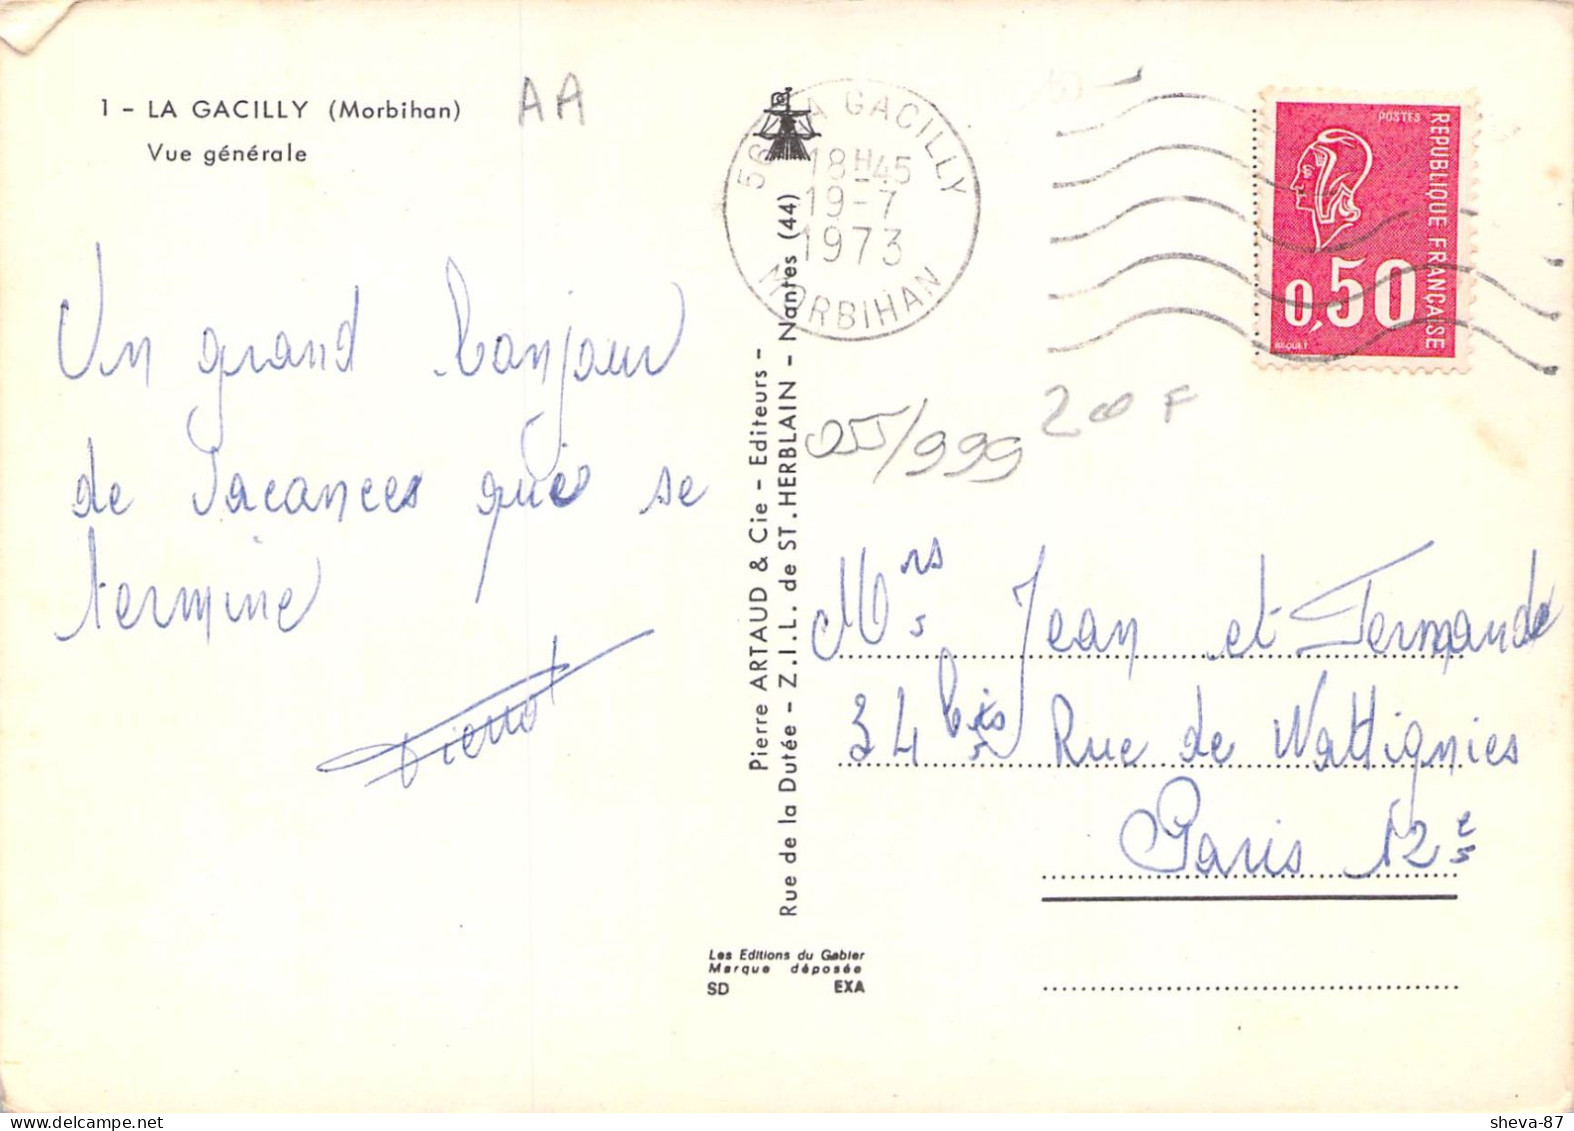 1 - LA GACILLY (Morbihan)
Vue générale
AA
56 LA GACILLY
18H45
19-7
1973
MORBIHAN
POSTES
REPUBLIQUE FRANÇAISE
0,50
BEQUET
200 F
/999
Un grand bonjour
de Vacances qui se
termine
Pierrot
Pierre ARTAUD & Cie - Editeurs -
Rue de la Dutée - Z.I.L. de ST. HERBLAIN - Nantes (44)
Mrs Jean et Fernande
34 bis Rue de Wattignies
Paris 12e
Les Editions du Gabier
Marque déposée
SD EXA
sheva-87